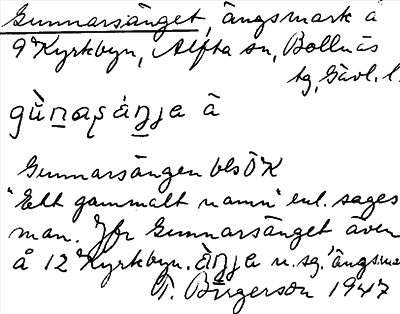 Gunnarsänget, ängsmark å
9 Kyrkbyn, Alfta sn, Bollnäs
tg, Gävl. l.
Gunnarsängen bls ÖK
"Ett gammalt namn" enl. sages
man. Jfr Gunnarsänget även
å 12 Kyrkbyn. n. sg. 'ängsma
T. Birgerson 1947